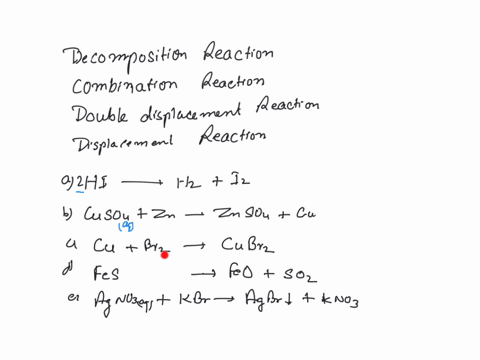 Decomposition Reaction
Combination Reaction
Double displacement Reaction
Displacement Reaction
a) 2HI → H2 + I2
b) CuSO4 (aq) + Zn → ZnSO4 + Cu
c) Cu + Br2 → CuBr2
d) FeS → FeO + SO2
e) AgNO3(aq) + KBr → AgBr↓ + KNO3